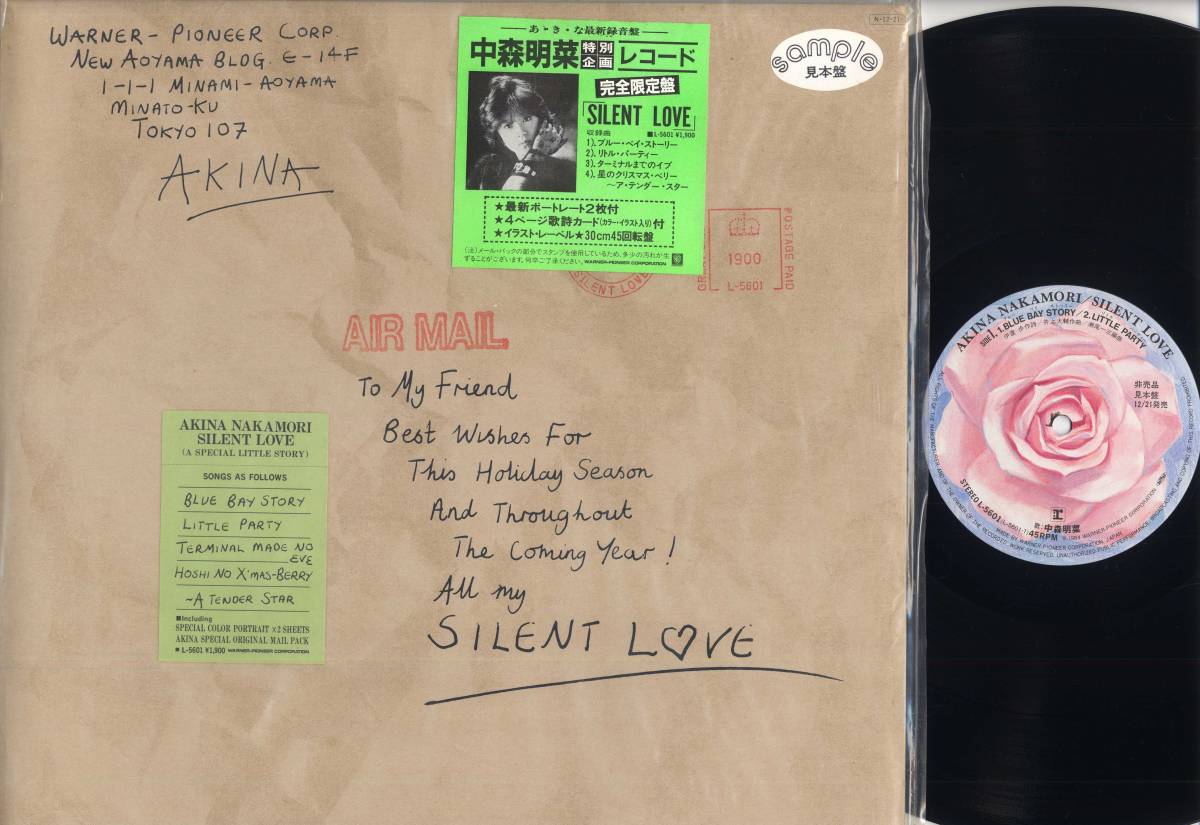 WARNER-PIONEER CORP.
NEW AOYAMA BLDG. E-14F
1-1-1 MINAMI-AOYAMA
MINATO-KU
TOKYO 107
AKINA
あ・き・な最新録音盤
中森明菜特別企画レコード
完全限定盤
「SILENT LOVE」
■L-5601 ¥1,900
収録曲
1).ブルー・ベイ・ストーリー
2).リトル・パーティー
3).ターミナルまでのイブ
4).星のクリスマス・ベリー
〜ア・テンダー・スター
★最新ポートレート2枚付
★4ページ歌詩カード(カラー・イラスト入り)付
★イラスト・レーベル★30cm45回転盤
(注)メール・パックの部分でスタンプを使用しているため、多少の汚れが生
ずることがございます。何卒ご了承ください。WARNER-PIONEER CORPORATION
N-12-21
sample
見本盤
SILENT LOVE
1900
L-5601
POSTAGE PAID
AIR MAIL
To My Friend
Best Wishes For
This Holiday Season
And Throughout
The Coming Year!
All my
SILENT L♡VE
AKINA NAKAMORI
SILENT LOVE
(A SPECIAL LITTLE STORY)
SONGS AS FOLLOWS
BLUE BAY STORY
LITTLE PARTY
TERMINAL MADE NO
EVE
HOSHI NO X'MAS-BERRY
~A TENDER STAR
■Including
SPECIAL COLOR PORTRAIT ×2 SHEETS
AKINA SPECIAL ORIGINAL MAIL PACK
■ L-5601 ¥1,900 WARNER-PIONEER CORPORATION
AKINA NAKAMORI/SILENT LOVE
SIDE 1, 1.BLUE BAY STORY/2.LITTLE PARTY
非売品
見本盤
12/21発売
STEREO L-5601 (L-5601-1) 45RPM
歌:中森明菜
℗1984 WARNER-PIONEER CORPORATION, JAPAN
MADE BY WARNER-PIONEER CORPORATION, JAPAN